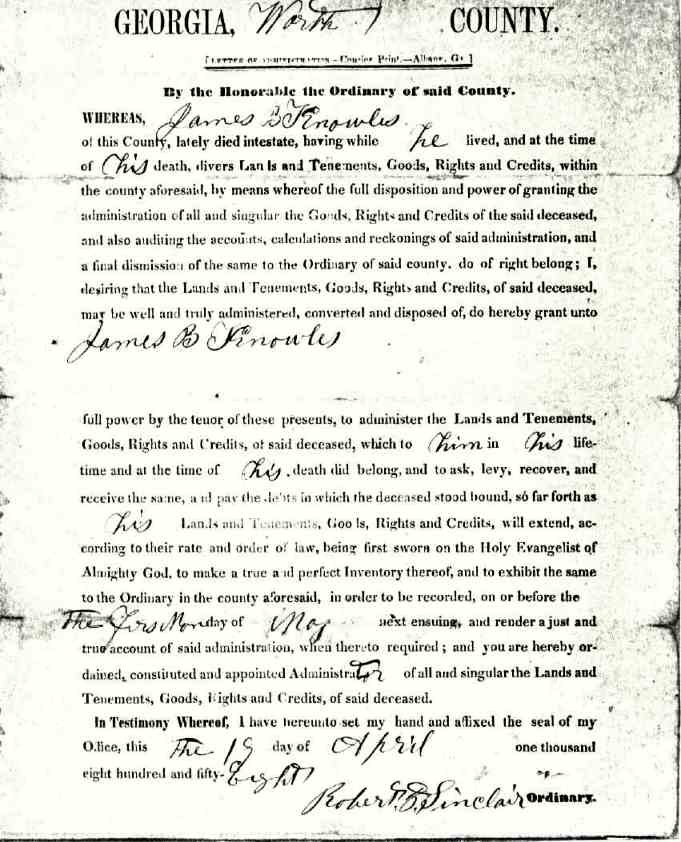 GEORGIA, Worth COUNTY.
[LETTER OF ADMINISTRATION—Courier Print.—Albany, Ga.]
By the Honorable the Ordinary of said County.
WHEREAS, James B Knowles
of this County, lately died intestate, having while he lived, and at the time
of his death, divers Lands and Tenements, Goods, Rights and Credits, within
the county aforesaid, by means whereof the full disposition and power of granting the
administration of all and singular the Goods, Rights and Credits of the said deceased,
and also auditing the accounts, calculations and reckonings of said administration, and
a final dismission of the same to the Ordinary of said county. do of right belong; I,
desiring that the Lands and Tenements, Goods, Rights and Credits, of said deceased,
may be well and truly administered, converted and disposed of, do hereby grant unto
James B Knowles
full power by the tenor of these presents, to administer the Lands and Tenements,
Goods, Rights and Credits, of said deceased, which to him in his life-
time and at the time of his death did belong, and to ask, levy, recover, and
receive the same, and pay the debts in which the deceased stood bound, so far forth as
his Lands and Tenements, Goods, Rights and Credits, will extend, ac-
cording to their rate and order of law, being first sworn on the Holy Evangelist of
Almighty God, to make a true and perfect Inventory thereof, and to exhibit the same
to the Ordinary in the county aforesaid, in order to be recorded, on or before the
The Firs Monday of May next ensuing, and render a just and
true account of said administration, when thereto required; and you are hereby or-
dained, constituted and appointed Administrator of all and singular the Lands and
Tenements, Goods, Rights and Credits, of said deceased.
In Testimony Whereof, I have hereunto set my hand and affixed the seal of my
Office, this the 19 day of April one thousand
eight hundred and fifty-Eight
Robert Sinclair Ordinary.